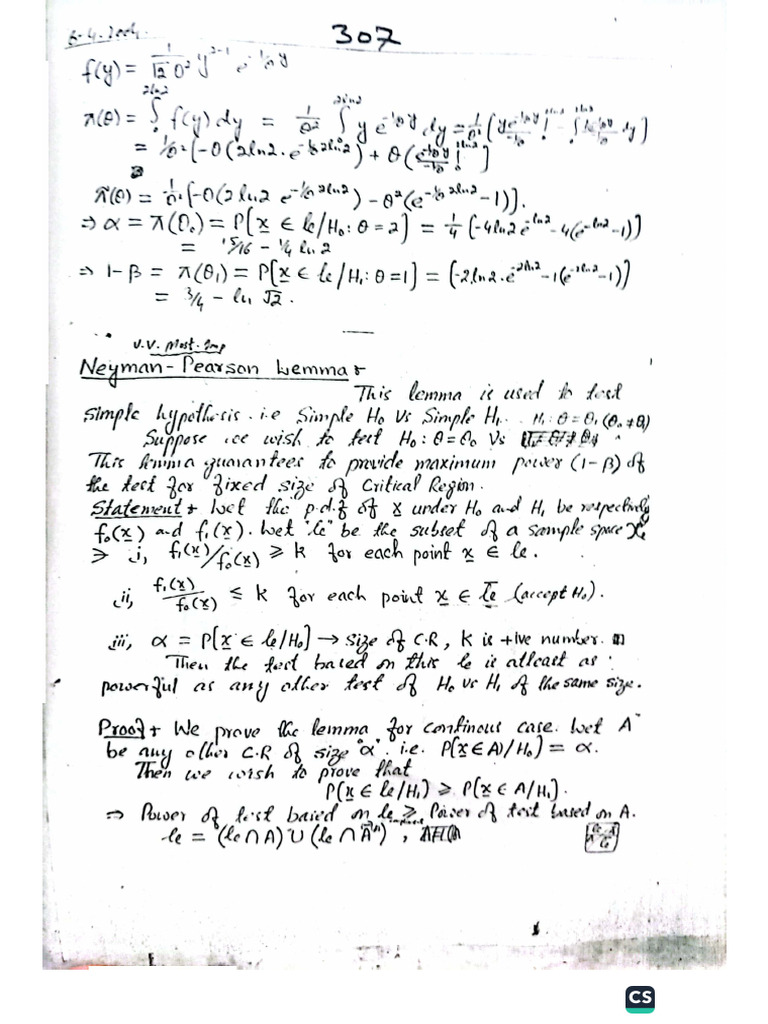 307
f(y) = 1/√2 θ² y^2-1 e^-1/θ y
π(θ) = ∫ f(y) dy = 1/θ² ∫ y e^-1/θ y dy
= 1/θ² [-θ(2ln2. e^-1/θ 2ln2) + θ(
π(θ) = 1/θ² [-θ(2ln2 e^-1/θ 2ln2) - θ²(e^-1/θ 2ln2 - 1)].
⇒ α = π(θ₀) = P[x ∈ C/H₀: θ = 2] = 1/4 [-4ln2 e^-ln2 - 4(e^-ln2 - 1)]
= - 1/4 ln 2
⇒ 1-β = π(θ₁) = P[x ∈ C/H₁: θ = 1] = [-2ln2. e^-2ln2 - 1(e^-2ln2 - 1)]
= 3/4 - ln √2.
V.V. Most. Imp
Neyman-Pearson Lemma:
This lemma is used to test
simple hypothesis. i.e Simple H₀ Vs Simple H₁. H₁: θ = θ₁ (θ₀ ≠ θ₁)
Suppose we wish to test H₀: θ = θ₀ Vs
This lemma guarantees to provide maximum power (1-β) of
the test for fixed size of Critical Region.
Statement: Let the p.d.f of x under H₀ and H₁ be respectively
f₀(x) and f₁(x). Let "C" be the subset of a sample space
∋ i, f₁(x)/f₀(x) ≥ K for each point x ∈ C.
ii, f₁(x)/f₀(x) ≤ K for each point x ∈ C̄ (accept H₀).
iii, α = P[x ∈ C/H₀] → size of C.R, K is +ive number.
Then the test based on this C is atleast as
powerful as any other test of H₀ vs H₁ of the same size.
Proof: We prove the lemma for continous case. Let A
be any other C.R of size "α". i.e. P(x ∈ A)/H₀) = α.
Then we wish to prove that
P(x ∈ C/H₁) ≥ P(x ∈ A/H₁).
⇒ Power of test based on C ≥ Power of test based on A.
C = (C ∩ A) ∪ (C ∩ Ā),
CS